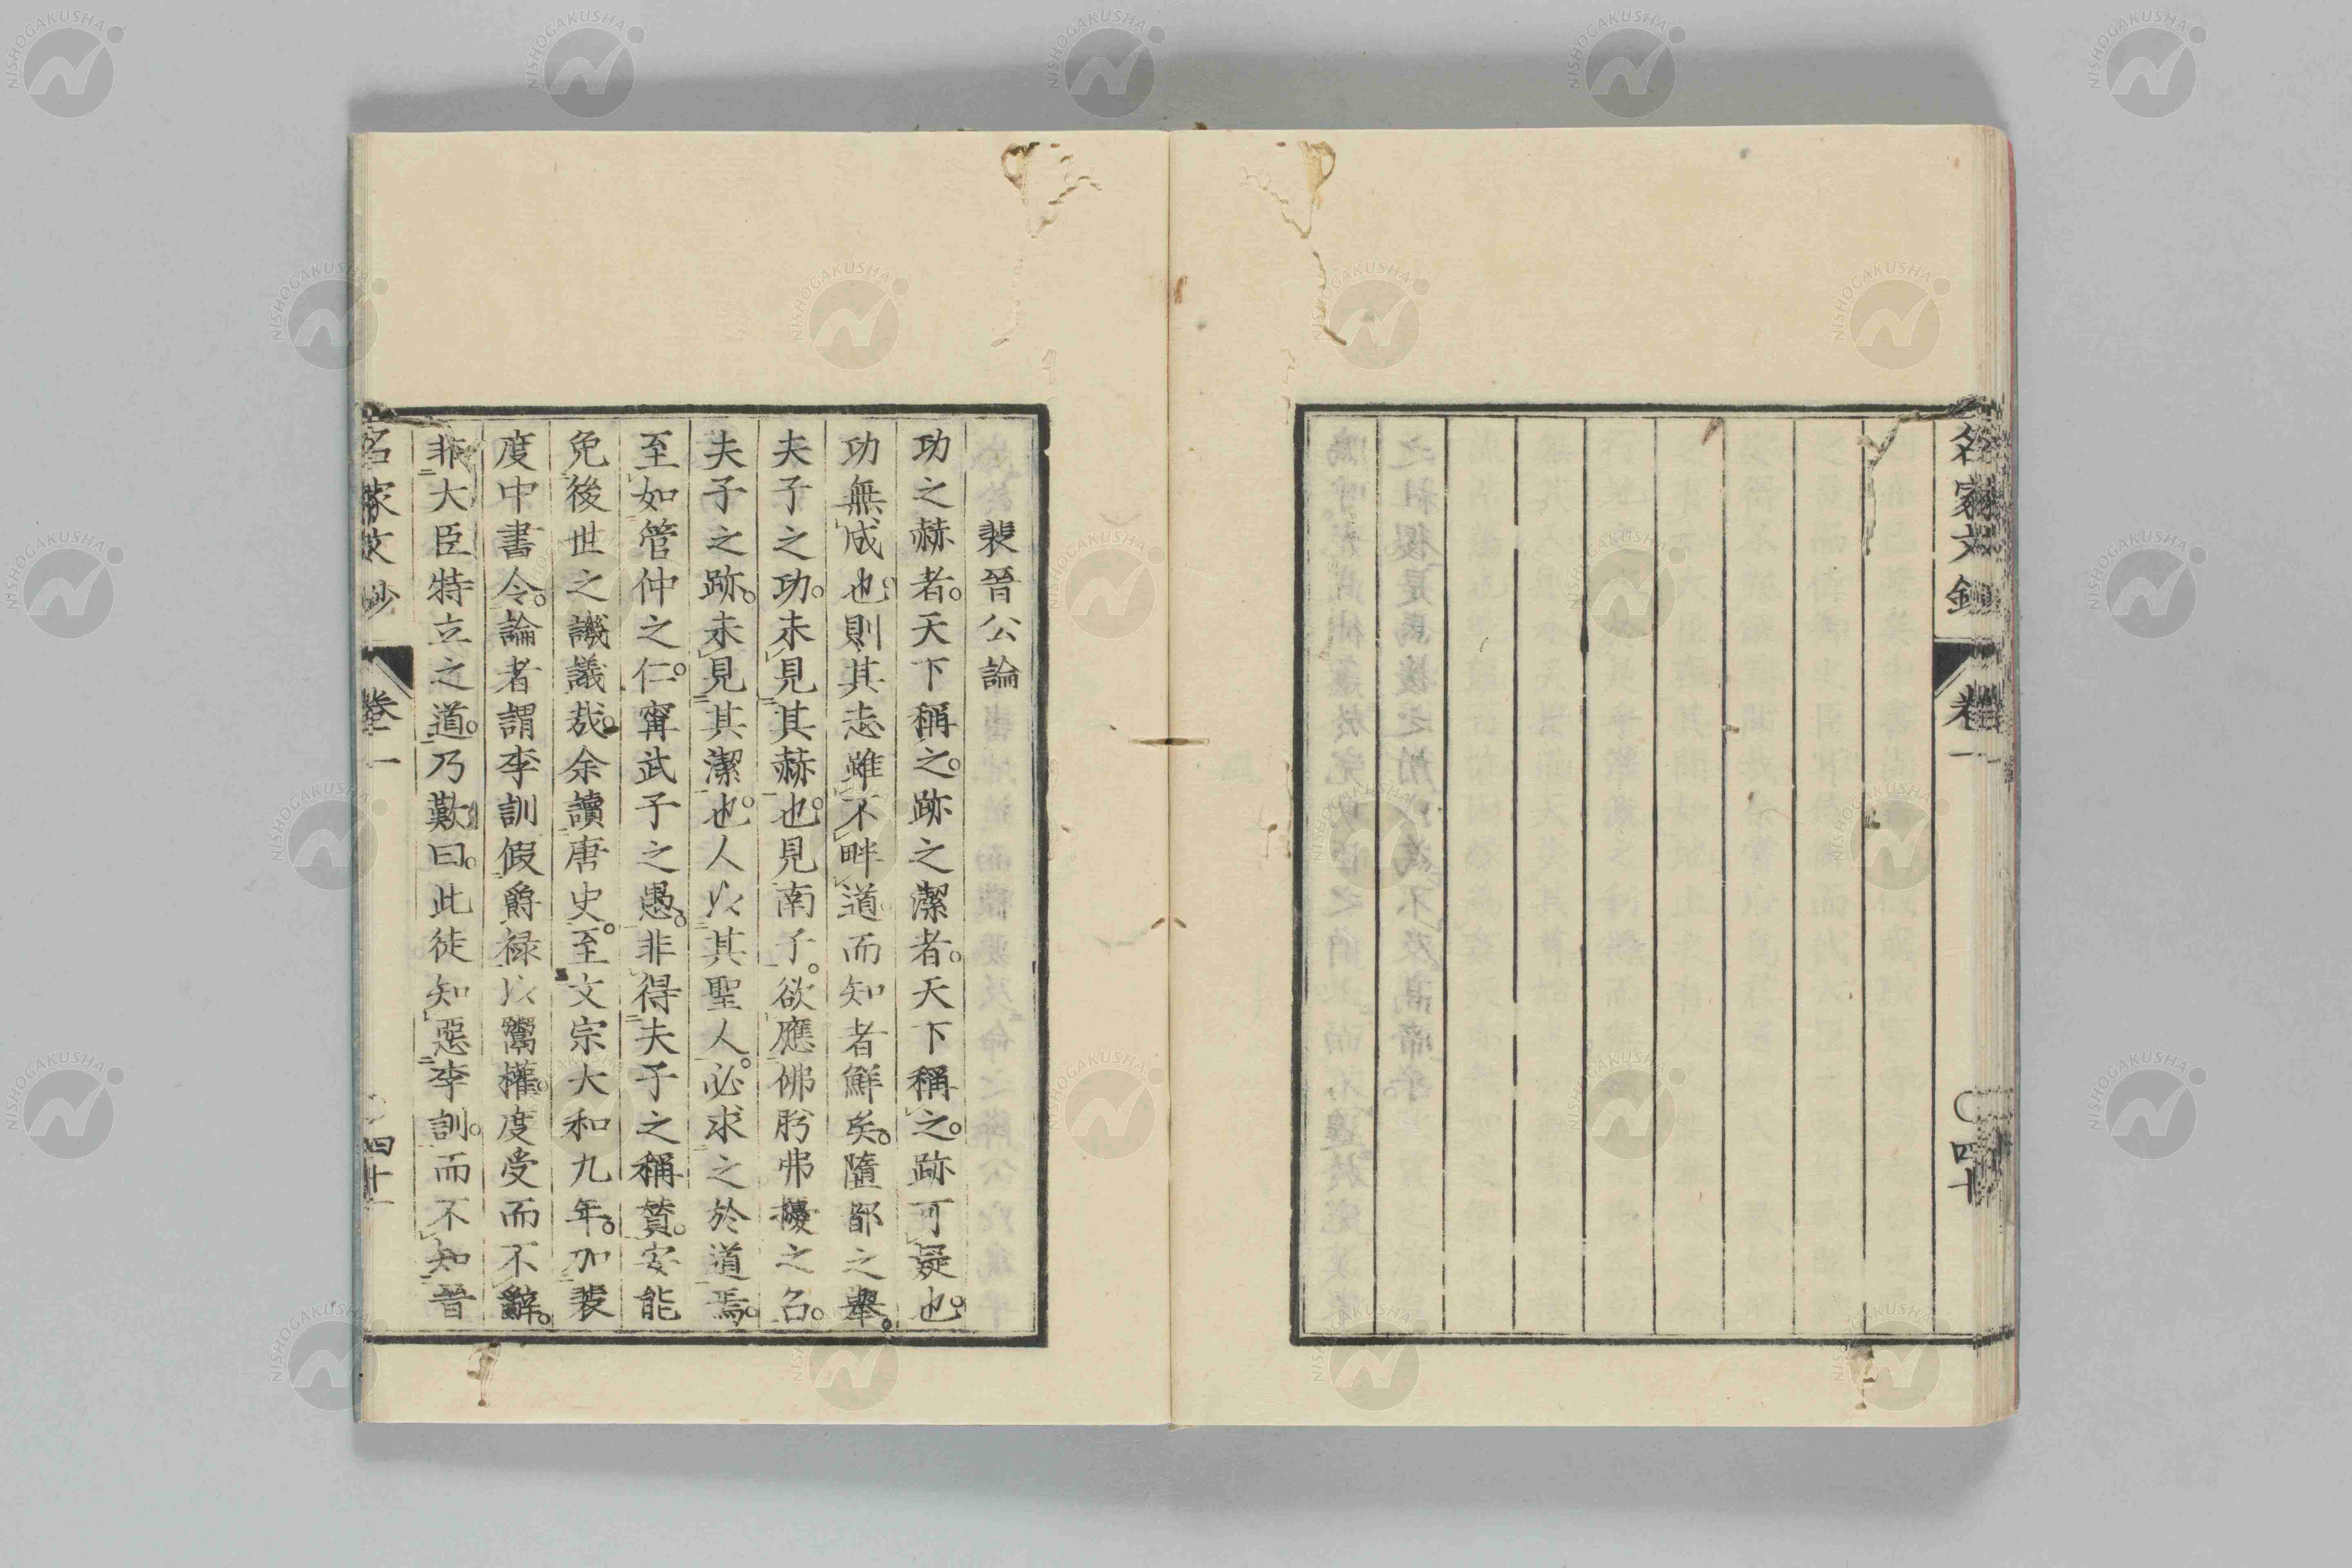 名家文鈔
卷一
四十
裴晉公論
功之赫者。天下稱之。跡之潔者。天下稱之。跡可疑也。
功無成也。則其志雖不畔道。而知者鮮矣。隳都之舉。
夫子之功。未見其赫也。見南子。欲應佛肸弗擾之召。
夫子之跡。未見其潔也。人以其聖人。必求之於道焉。
至如管仲之仁。甯武子之愚。非得夫子之稱贊。安能
免後世之譏議哉。余讀唐史。至文宗大和九年。加裴
度中書令。論者謂李訓假爵祿以鬻權。度受而不辭。
非大臣特立之道。乃歎曰。此徒知惡李訓。而不知晉
名家文鈔
卷一
四十一
NISHOGAKUSHA